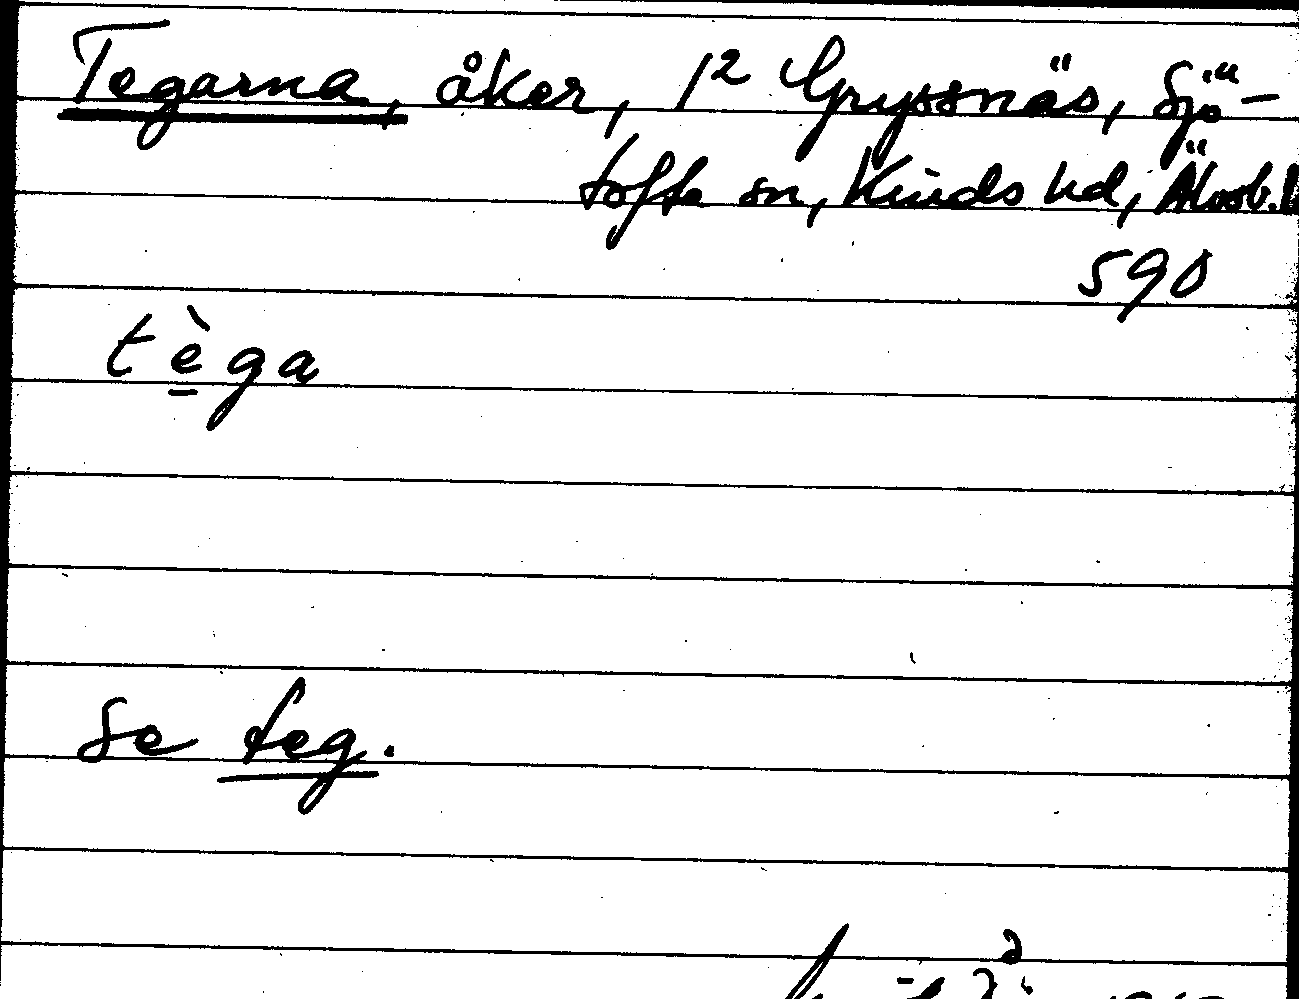 Tegarna, åker, 1² Gryssnäs, Sjö-
tofta sn, Kinds hd, Älvsb. l
590
tèga
Se teg.